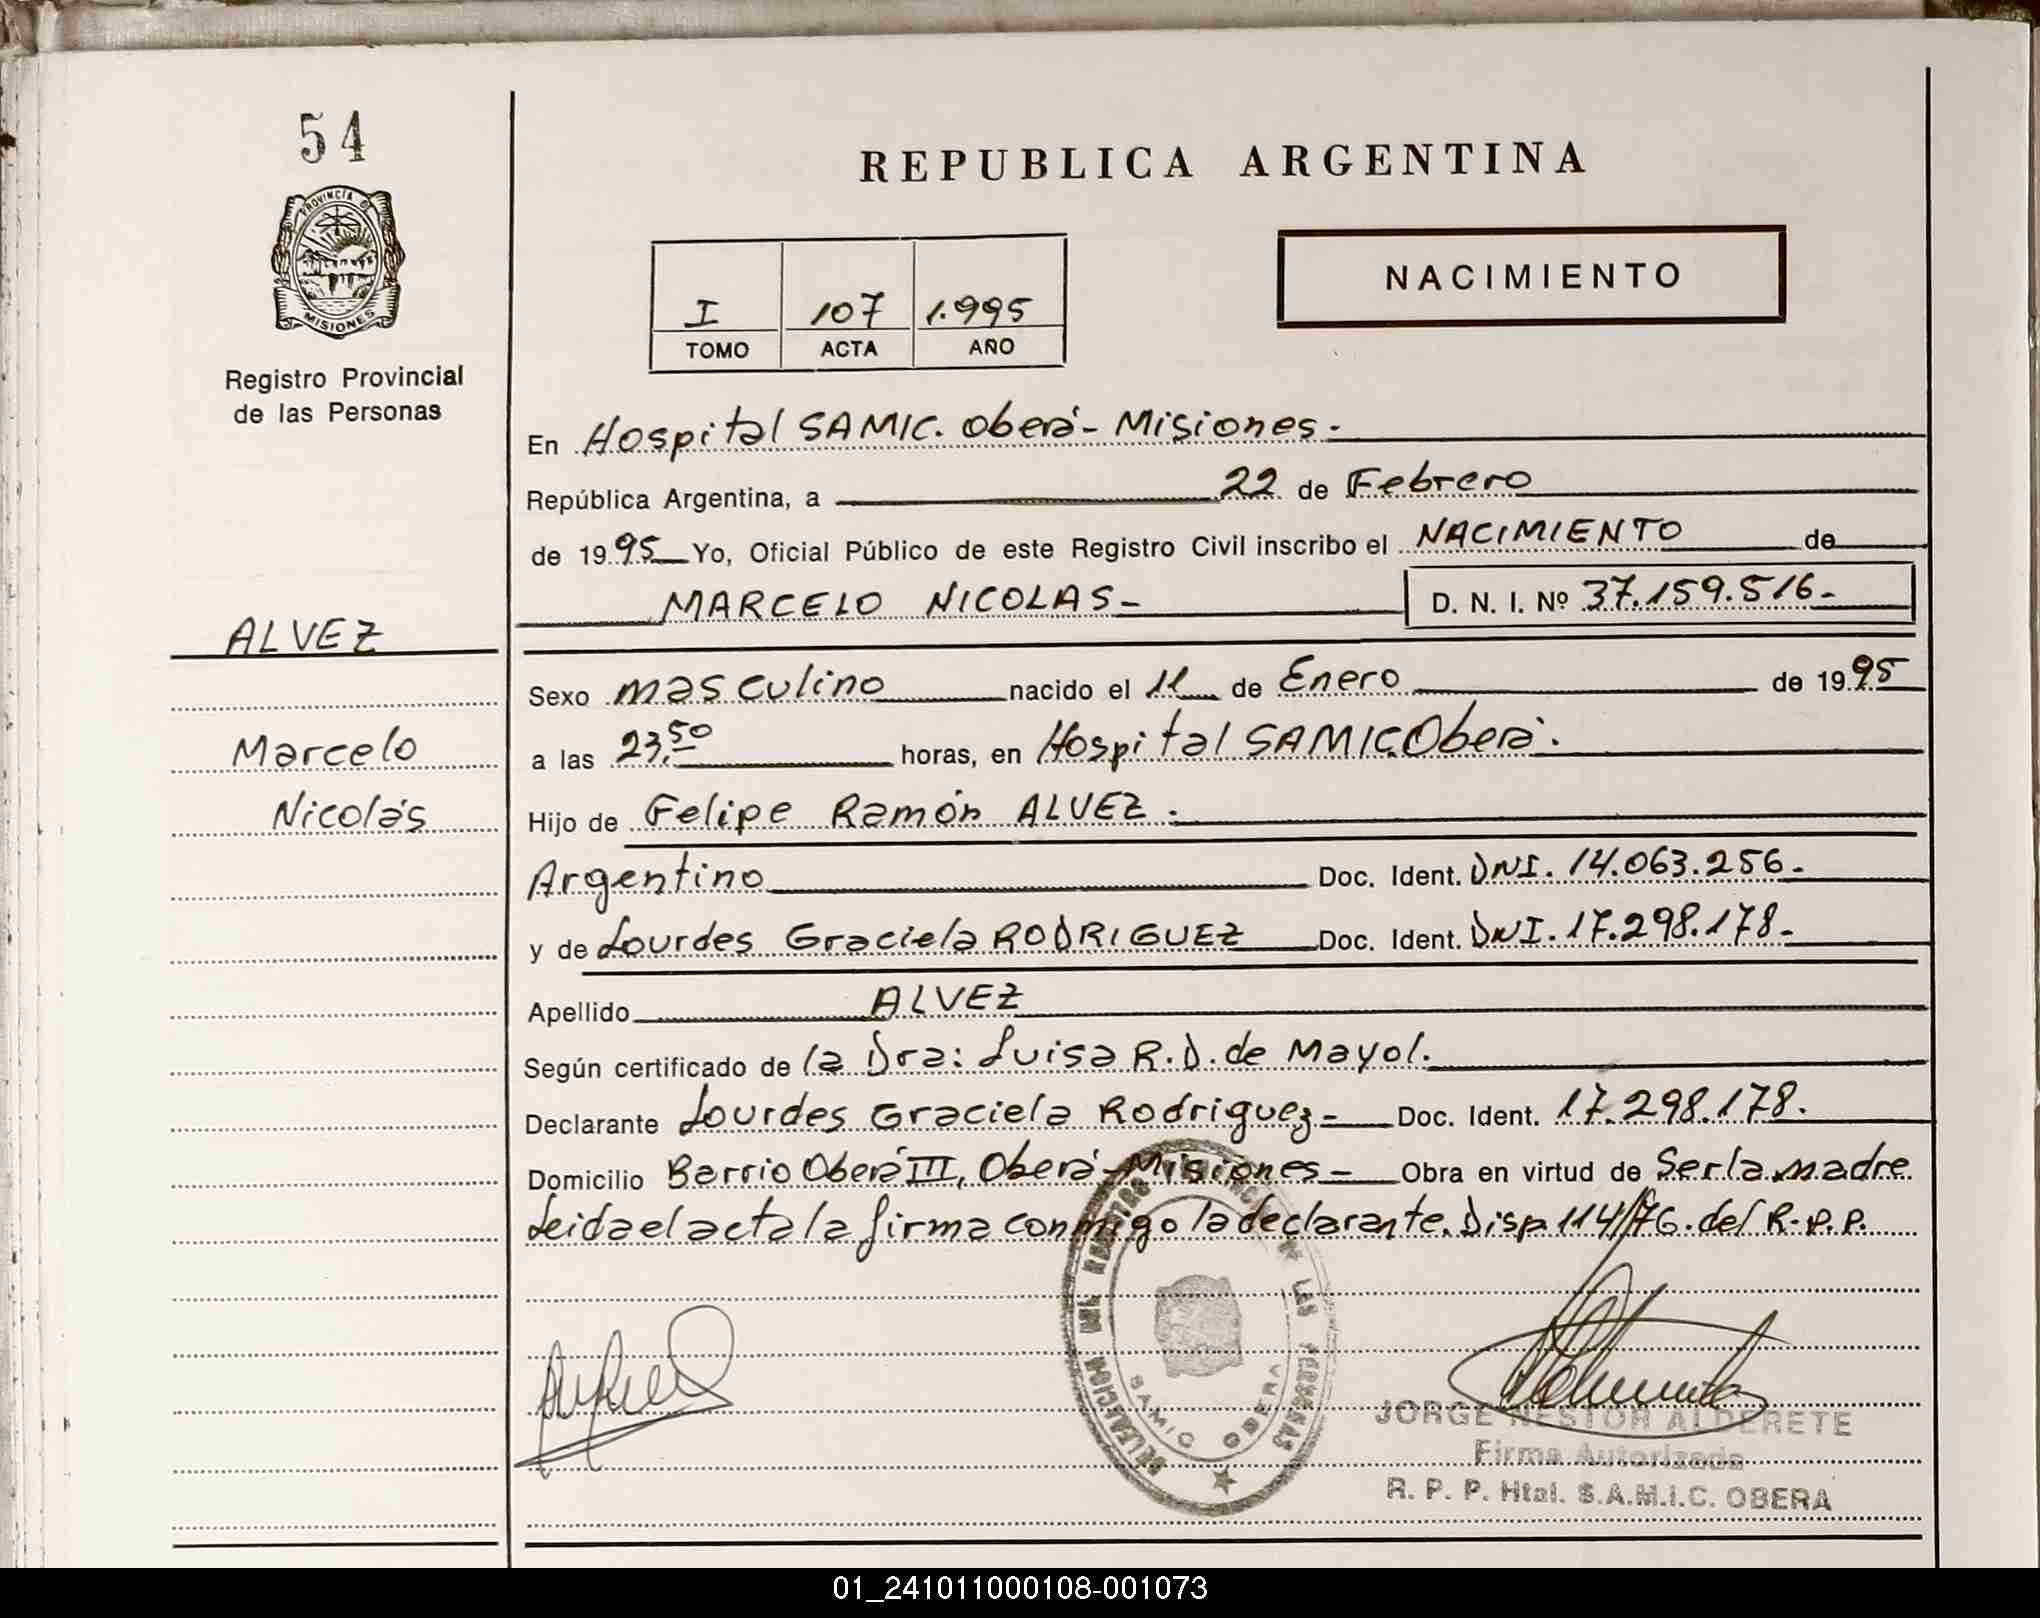 54
PROVINCIA DE
MISIONES
Registro Provincial
de las Personas
REPUBLICA ARGENTINA
I 107 1.995
TOMO ACTA AÑO
NACIMIENTO
En Hospital SAMIC. Oberá - Misiones.
República Argentina, a 22 de Febrero
de 1995 Yo, Oficial Público de este Registro Civil inscribo el NACIMIENTO de
MARCELO NICOLAS - D. N. I. Nº 37.159.516.-
ALVEZ
Marcelo
Nicolás
Sexo masculino nacido el 11 de Enero de 1995
a las 23,50 horas, en Hospital SAMIC. Oberá.
Hijo de Felipe Ramón ALVEZ.
Argentino Doc. Ident. DNI. 14.063.256.-
y de Lourdes Graciela RODRIGUEZ Doc. Ident. DNI. 17.298.178.-
Apellido ALVEZ
Según certificado de la Dra: Luisa R.D. de Mayol.
Declarante Lourdes Graciela Rodriguez - Doc. Ident. 17.298.178.
Domicilio Barrio Oberá III, Oberá - Misiones - Obra en virtud de Ser la madre
Leida el acta la firma conmigo la declarante. Disp. 114/76. del R.P.P.
DELEGACION DEL REGISTRO PROVINCIAL DE LAS PERSONAS
SAMIC OBERA
JORGE NESTOR ALDERETE
Firma Autorizada
R. P. P. Htal. S.A.M.I.C. OBERA
01_241011000108-001073